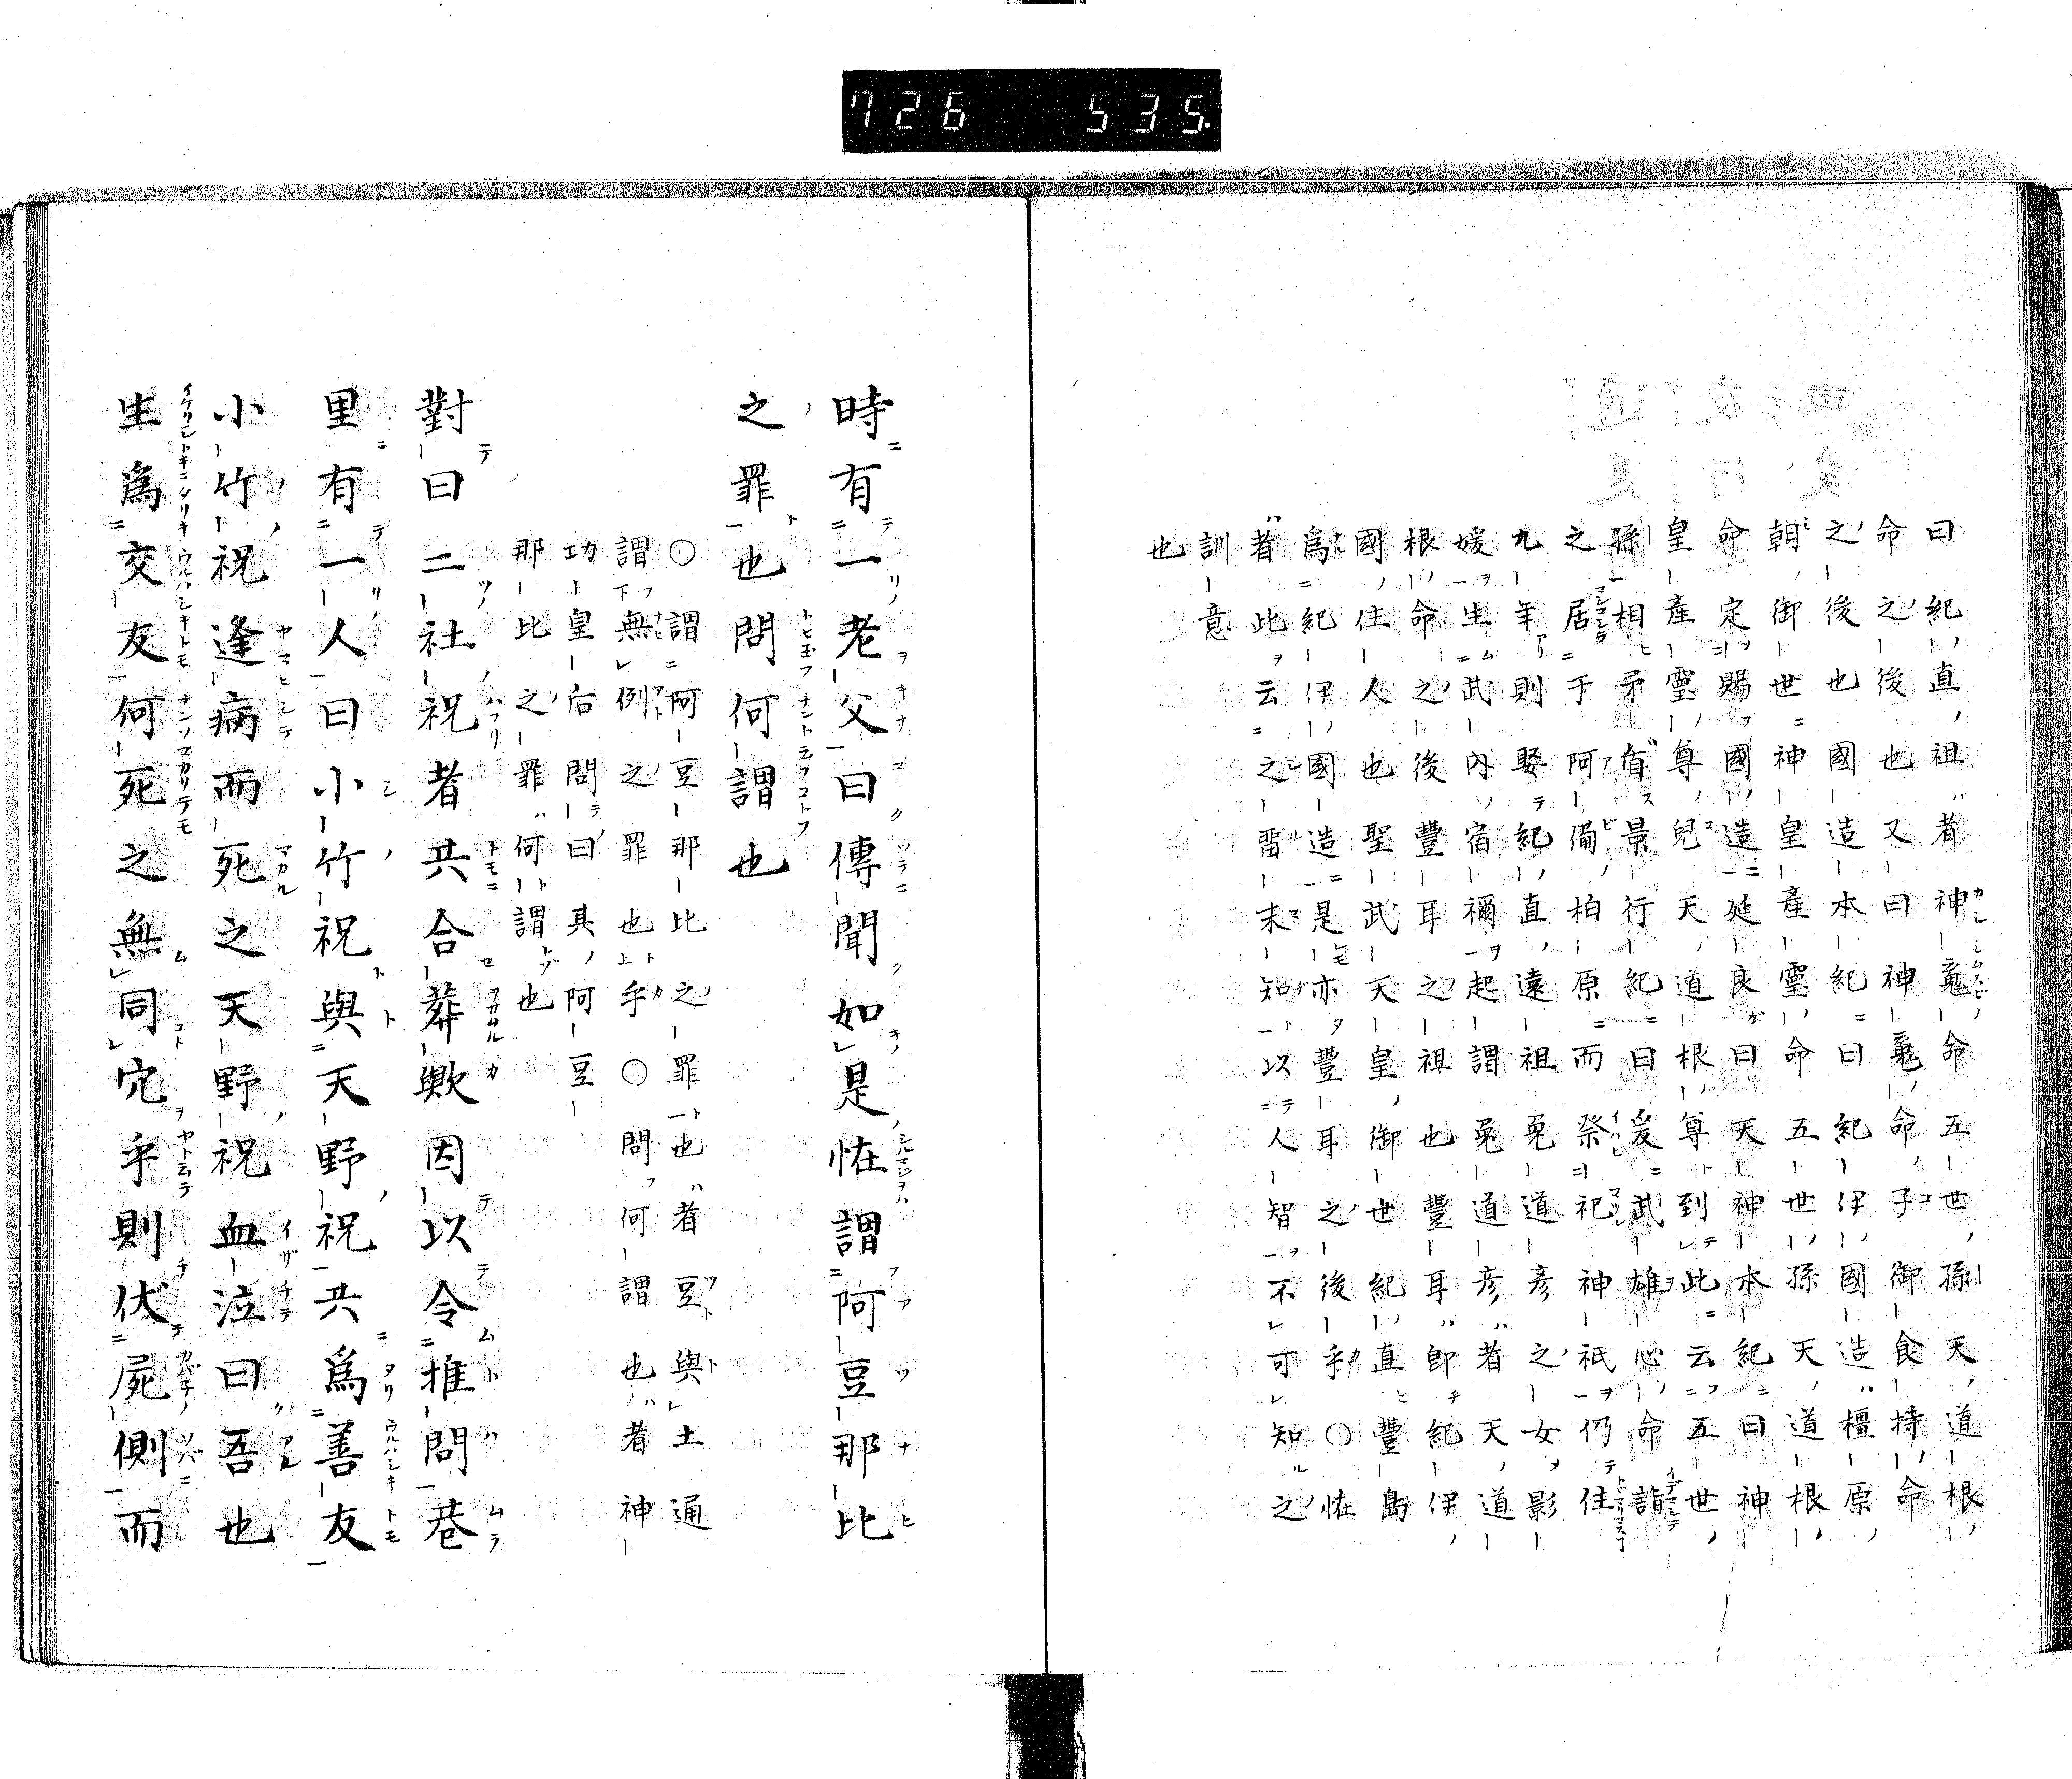 726 535.
曰紀直祖者神魂命五世孫天道根
命之後也又曰神魂命子御食持命
之後也國造本紀曰紀伊國造橿原
朝御世神皇產靈命五世孫天道根
命定賜國造延良曰天神本紀曰神
皇產靈尊兒天道根尊到此云五世
孫相矛盾景行紀曰爰武雄心命詣
之居于阿備柏原而祭祀神祇仍住
九年則娶紀直遠祖菟道彦之女影
媛生武內宿禰起謂菟道彦者天道
根命之後豐耳之祖也豐耳即紀伊
國住人也聖武天皇御世紀直豐島
為紀伊國造是亦豐耳之後乎〇恠
者此云之畱末知以人智不可知之
訓意
也
時有一老父曰傳聞如是恠謂阿豆那比
之罪也問何謂也
〇謂阿豆那比之罪也者豆與土通
謂無例之罪也乎〇問何謂也者神
功皇后問曰其阿豆
那比之罪何謂也
對曰二社祝者共合葬歟因以令推問巷
里有一人曰小竹祝與天野祝共為善友
小竹祝逢病而死之天野祝血泣曰吾也
生為交友何死之無同穴乎則伏屍側而